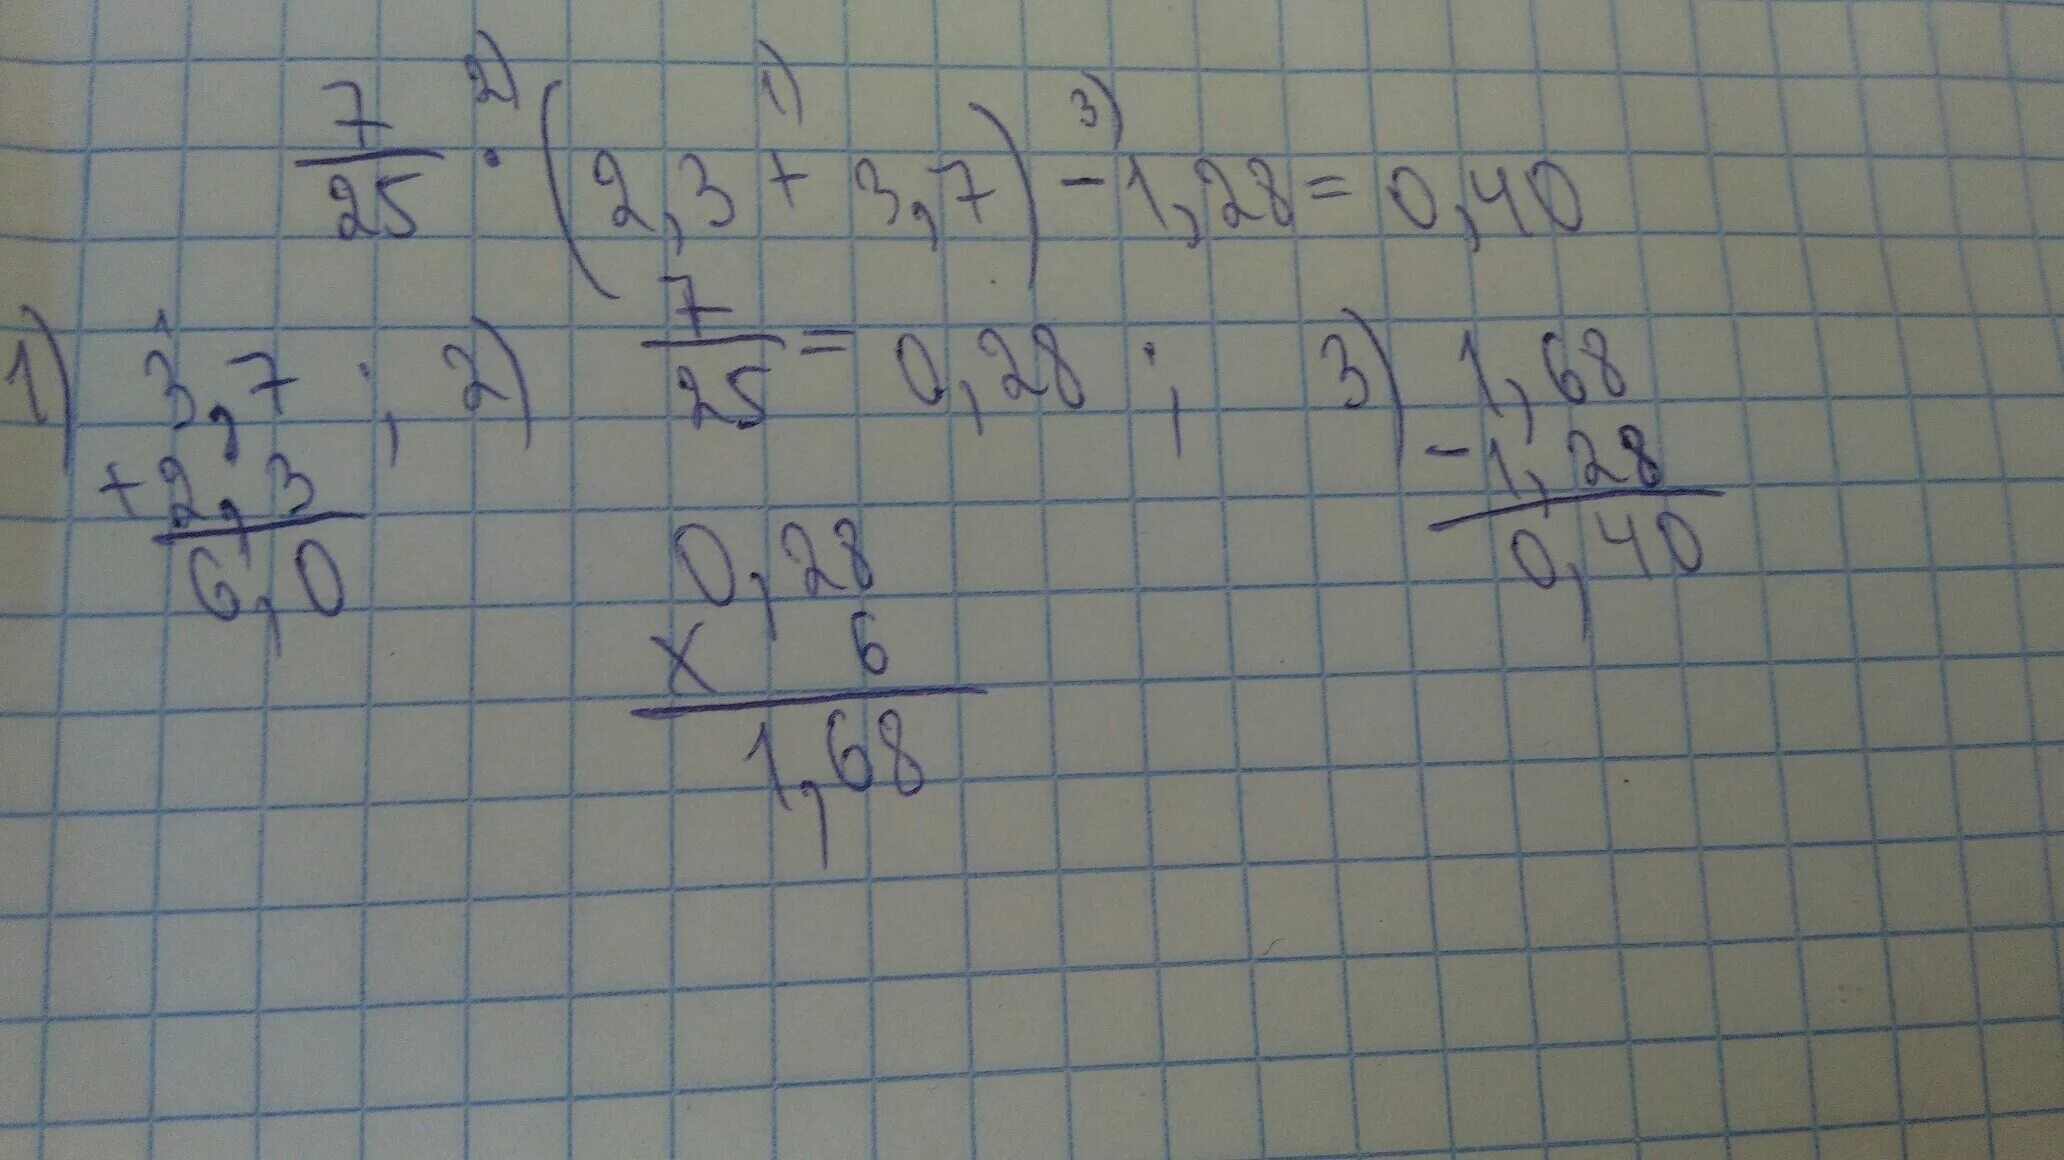 7/25 ·²⁾ (2,3 +¹⁾ 3,7) -³⁾ 1,28 = 0,40
1) ¹3,7 ; 2) 7/25 = 0,28 ; 3) 1,68
+ 2,3
6,0
- 1,28
0,40
0,28
x 6
1,68